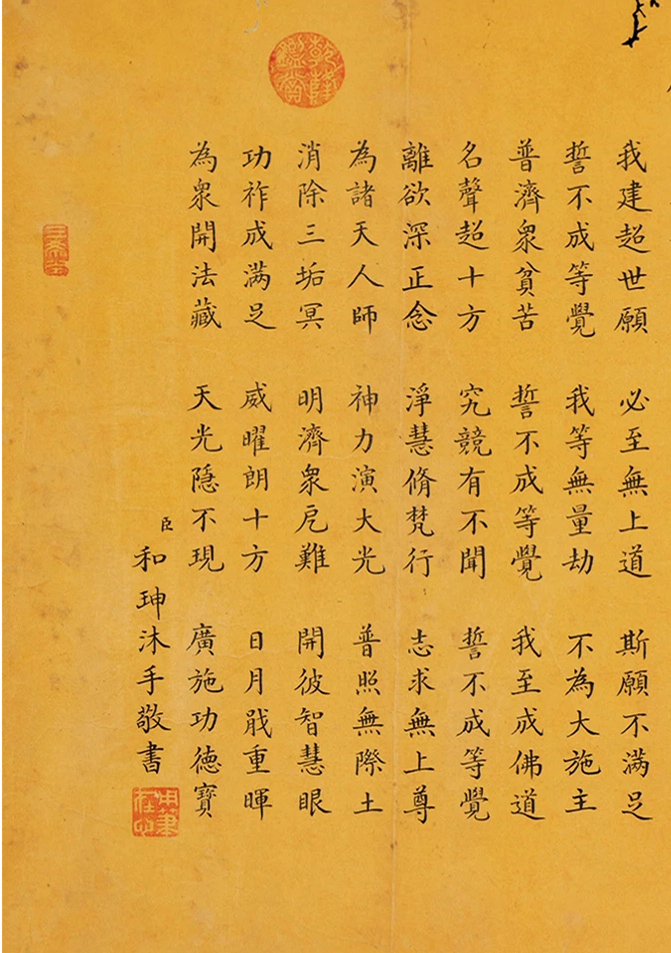 我建超世願 必至無上道 斯願不滿足
誓不成等覺 我等無量劫 不為大施主
普濟衆貧苦 誓不成等覺 我至成佛道
名聲超十方 究競有不聞 誓不成等覺
離欲深正念 淨慧脩梵行 志求無上尊
為諸天人師 神力演大光 普照無際土
消除三垢冥 明濟衆厄難 開彼智慧眼
功祚成滿足 威曜朗十方 日月戢重暉
為衆開法藏 天光隱不現 廣施功德寶
臣和珅沐手敬書
乾隆鑑賞
用筆在心